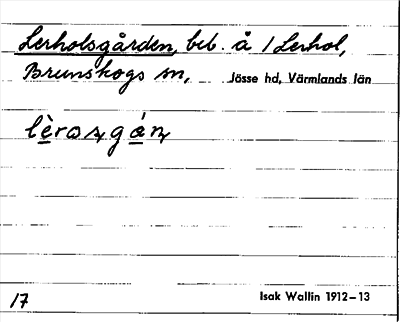 Lerholsgården, beb. å 1 Lerhol,
Brunskogs sn, Jösse hd, Värmlands län
17
Isak Wallin 1912-13